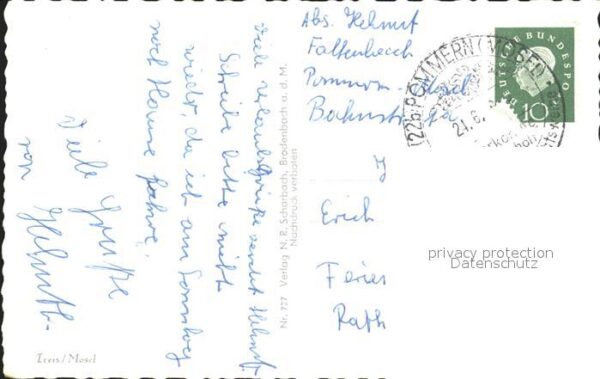 viele Urlaubsgrüße sendet Helmut.
Schreibe bitte nicht
wieder, da ich am Sonntag
nach Hause fahre.
Viele Grüße
von Helmut.
Treis/Mosel
Nr. 727 Verlag N. R. Scharbach, Brodenbach a. d. M.
Nachdruck verboten
Abs. Helmut
Faltenbach
Pommern-Mosel
Bahnstr.
(22b) POMMERN (MOSEL)
DEUTSCHE BUNDESPOST
10
Erich
Feier
Rath
privacy protection
Datenschutz